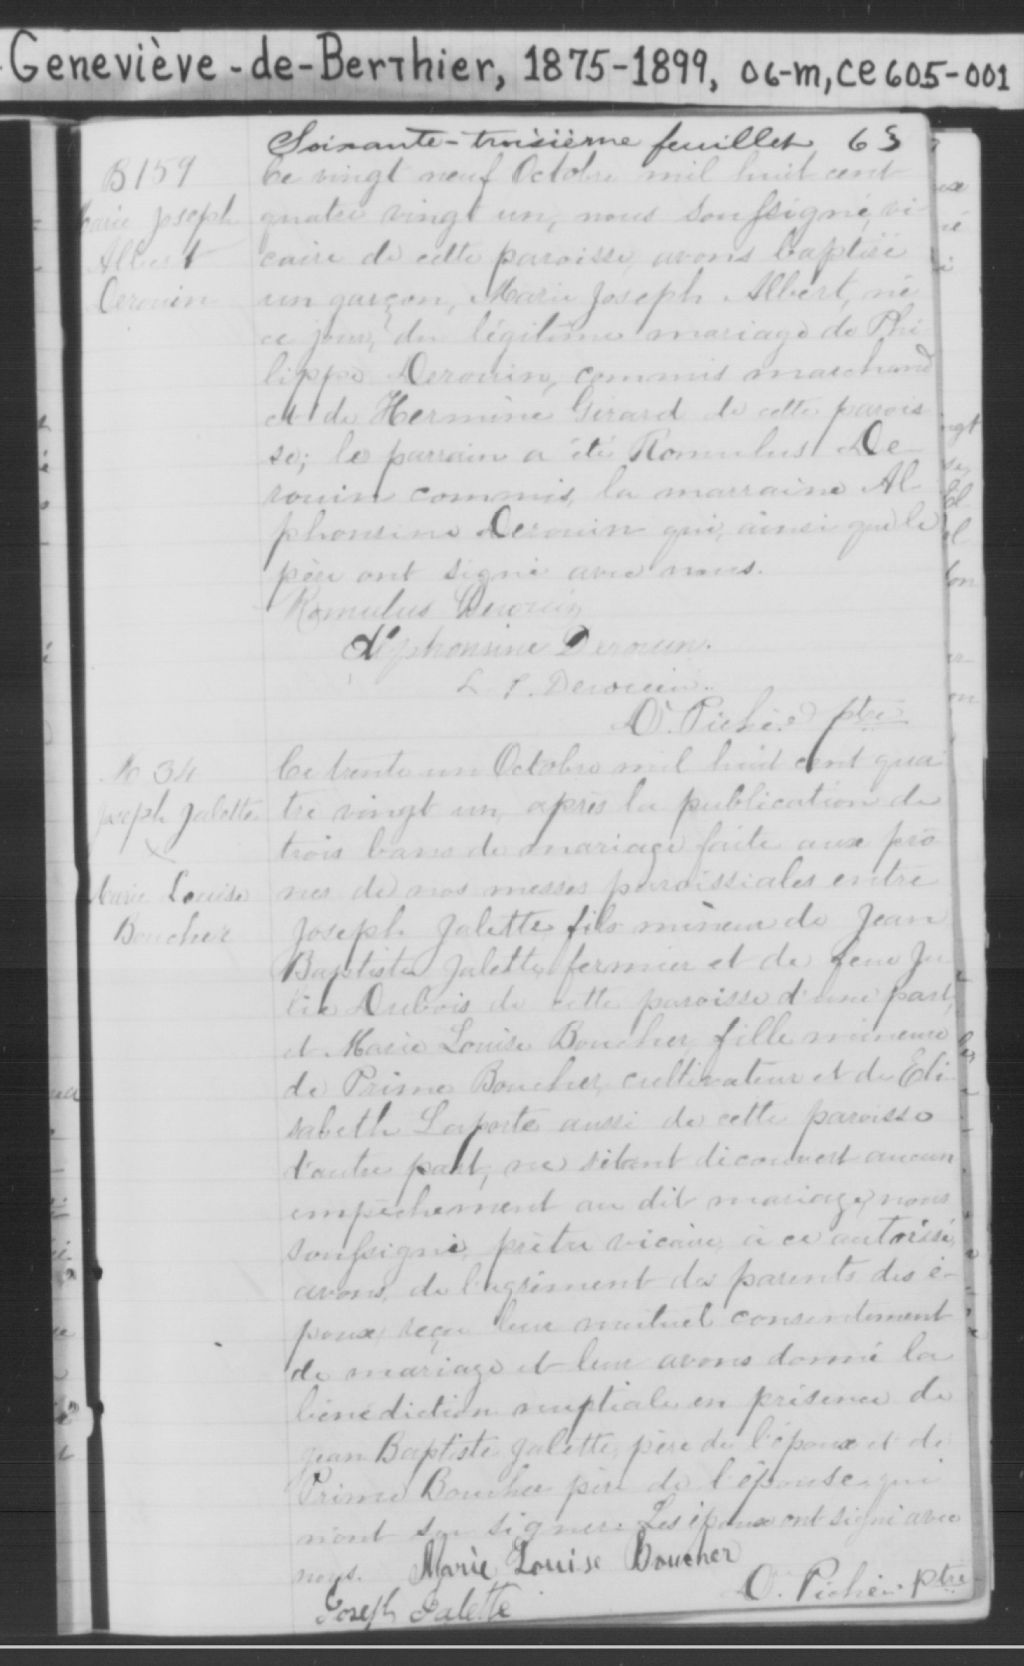 Geneviève-de-Berthier, 1875-1899, 06-m, ce605-001
Soixante-troisième feuillet 63
B 159
Marie Joseph
Albert
Derouin
Ce vingt neuf Octobre mil huit cent
quatre vingt un, nous soussigné, vi-
caire de cette paroisse, avons baptisé
un garçon, Marie Joseph Albert, né
ce jour, du légitime mariage de Phi
lippe Derouin, commis marchand
et de Hermine Girard de cette parois
se; le parrain a été Romulus De-
rouin commis, la marraine Al-
phonsine Derouin qui, ainsi que le
père ont signé avec nous.
Romulus Derouin
Alphonsine Derouin.
L. P. Derouin
O. Piché ptre
M 34
Joseph Jalette
X
Marie Louise
Boucher
Ce trente un Octobre mil huit cent qua
tre vingt un, après la publication de
trois bans de mariage faite aux prô
nes de nos messes paroissiales entre
Joseph Jalette fils mineur de Jean
Baptiste Jalette, fermier et de feue Ju
lie Dubois de cette paroisse d'une part,
et Marie Louise Boucher, fille mineure
de Prime Boucher, cultivateur et de Eli-
sabeth Laporte aussi de cette paroisse
d'autre part, ne s'étant découvert aucun
empêchement au dit mariage, nous
soussigné, prêtre vicaire, à ce autorisé,
avons, de l'agrément des parents des é-
poux, reçu leur mutuel consentement
de mariage et leur avons donné la
bénédiction nuptiale en présence de
Jean Baptiste Jalette, père de l'époux et de
Prime Boucher père de l'épouse qui
n'ont su signer. Les époux ont signé avec
nous. Marie Louise Boucher
Joseph Jalette O. Piché ptre